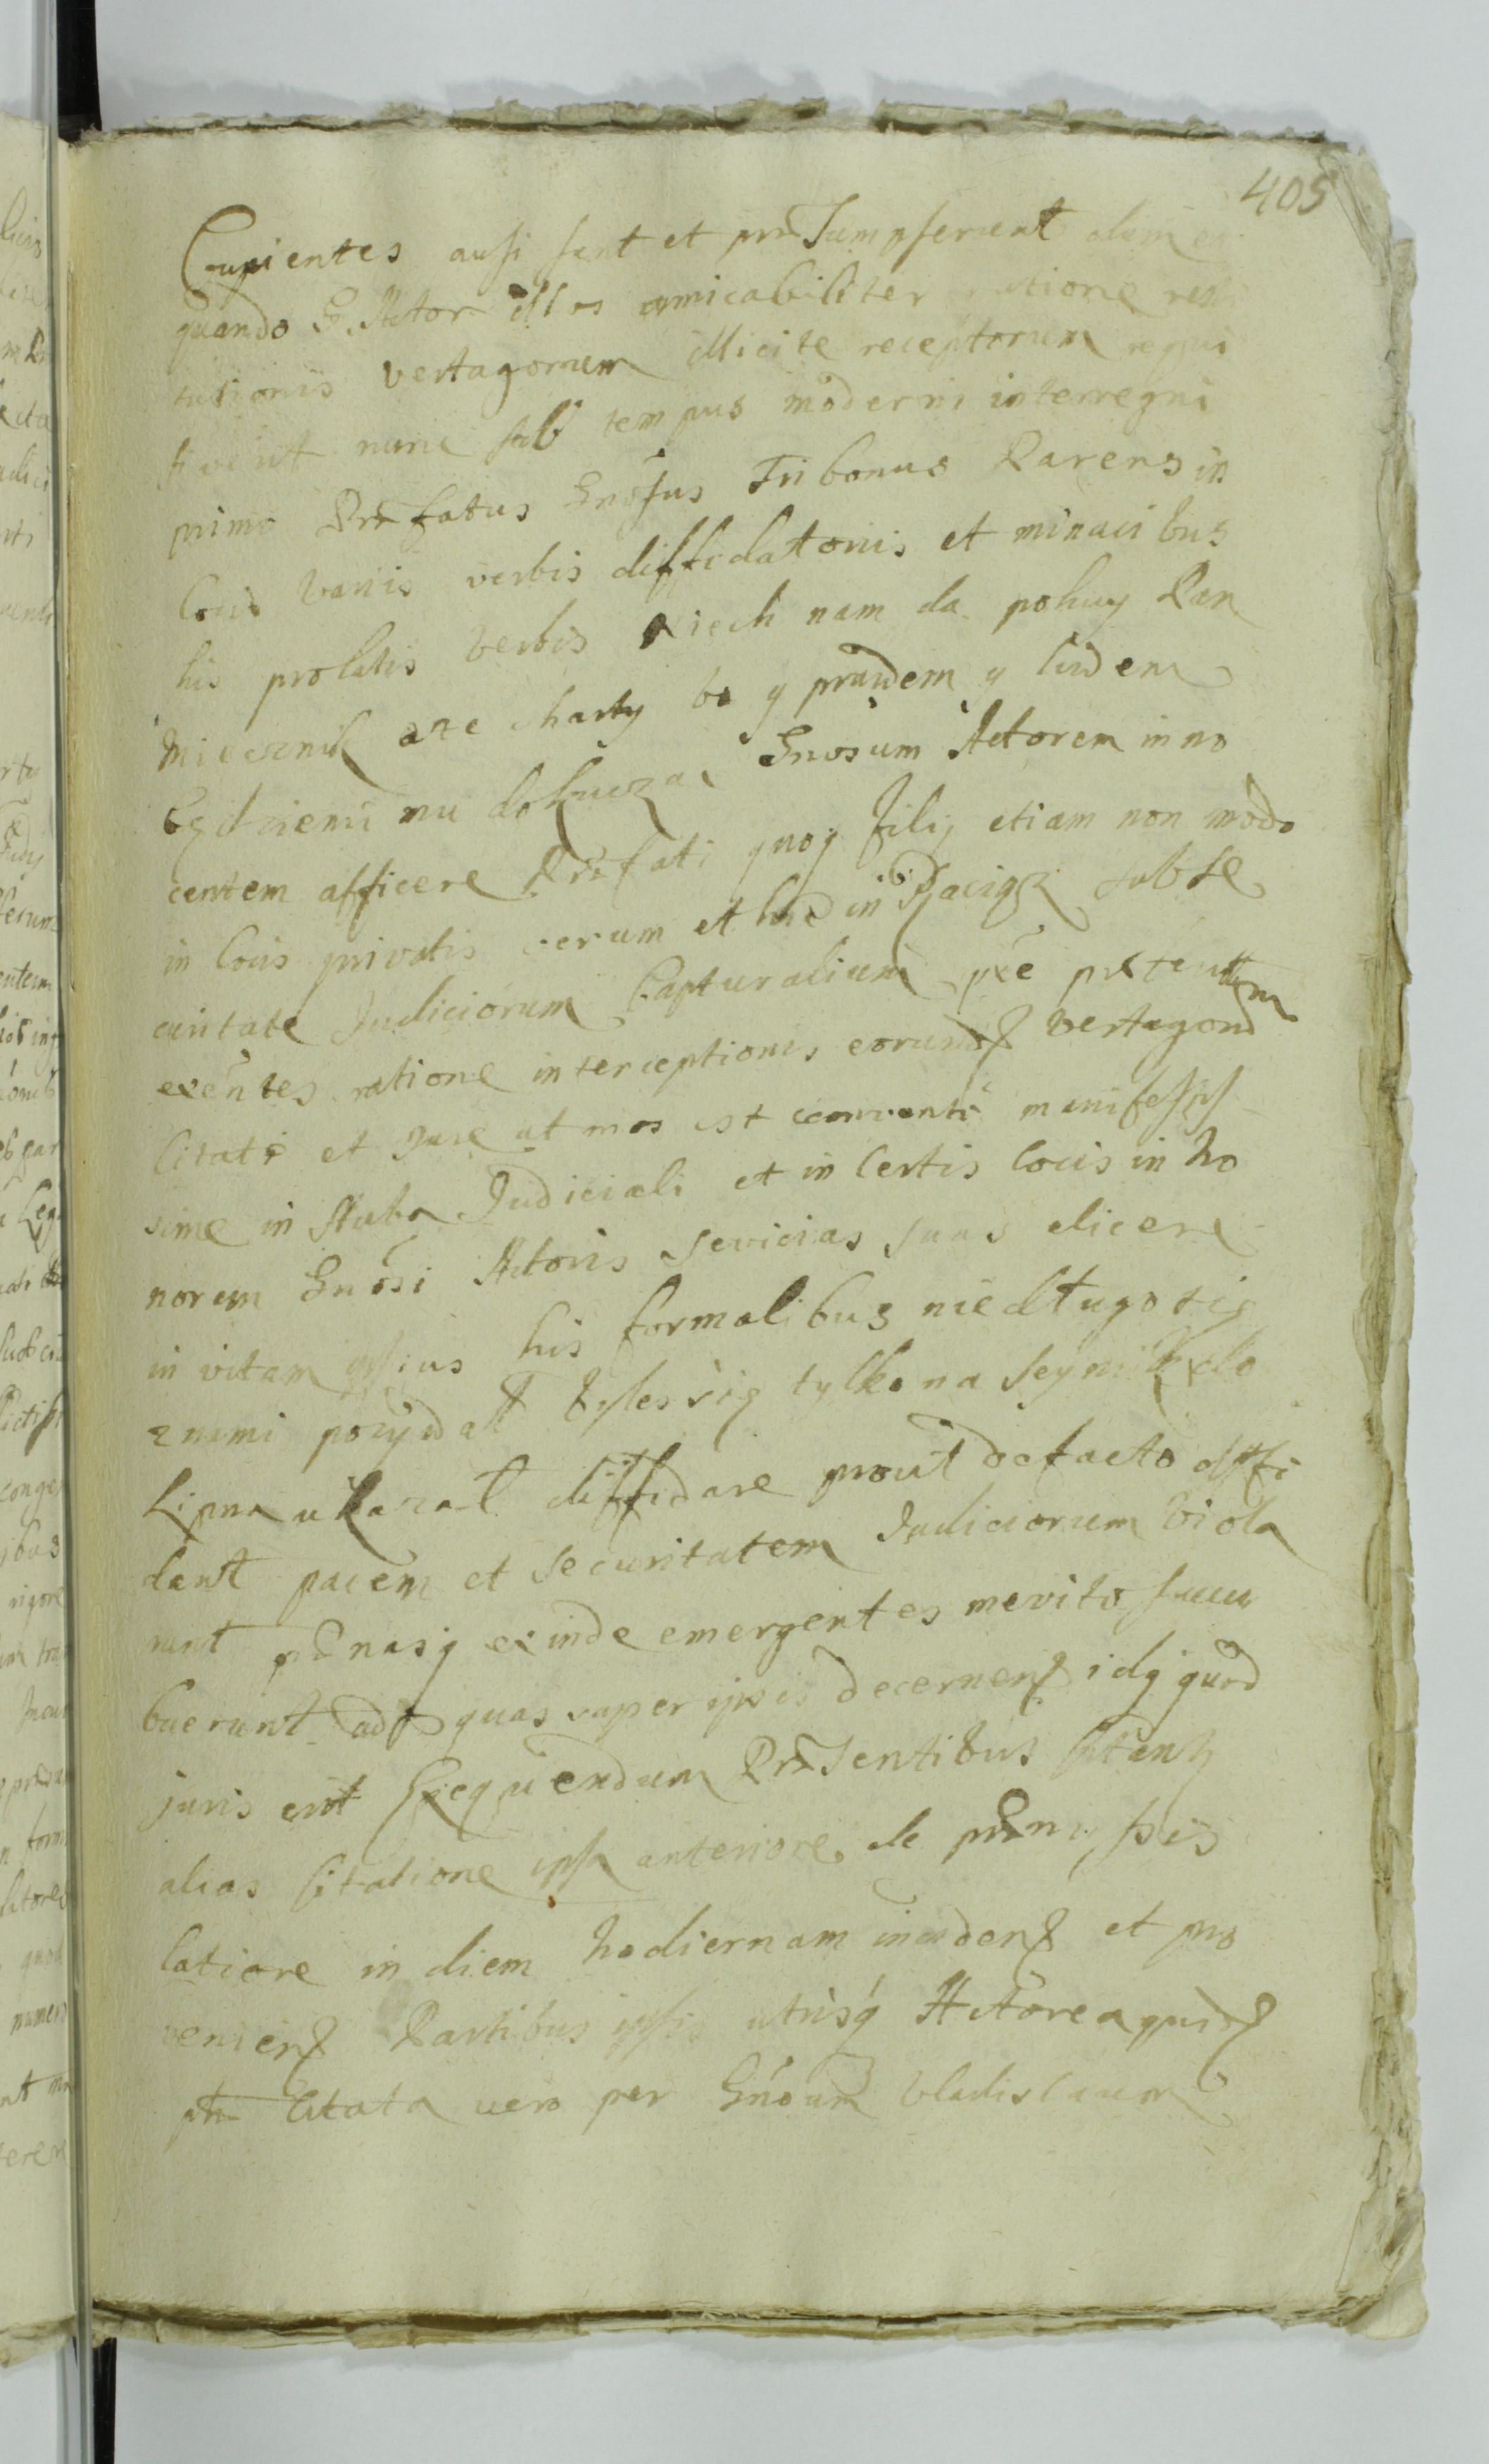 405
Cupientes ausi sunt et præsumpserunt dum et
quando G. Actor illos amicabiliter ratione resti
tutionis vertagorum illicite receptorum requi
sivent nunc sub tempus moderni interregni
primo Præfatus Gnosus Tribonus Parens in
locis variis verbis diffidatoriis et minacibus
his prolatis verbis Niech nam da pokuy Pan
Miecznik o te charty bo y prawdem y ludem
będziemi mu dokuczac Gnosum Actorem inno
centem afficere Præfati quoq filij etiam non modo
in locis privatis verum et hic in Raciąz sub se
curitate Judiciorum Capturalium præ prætentum
exentes ratione interceptionis eorund vertagorum
Citati et jure ut mos est conventi manifestis
sime in stuba Judiciali et in Certis locis in ho
norem Gnosi Actoris sevicias suas elicere
in vitam ipsius his formalibus niedługo się
z nami poeydał byles się tylko na Seymik do
Lipna ukazał diffidare prout de facto diffi
dant pacem et securitatem Judiciorum viola
runt pænasq exinde emergentes merito succu
buerunt ad quas super ipsis decernen idq quod
juris erit Exequendum Præsentibus Citant
alias Citatione ipsa anteriore de præmissis
latiore in diem hodiernam inciden et pro
venien Partibus ipsis utrisq Actorea quid
pte Citata vero per Gnosum Vladislaum